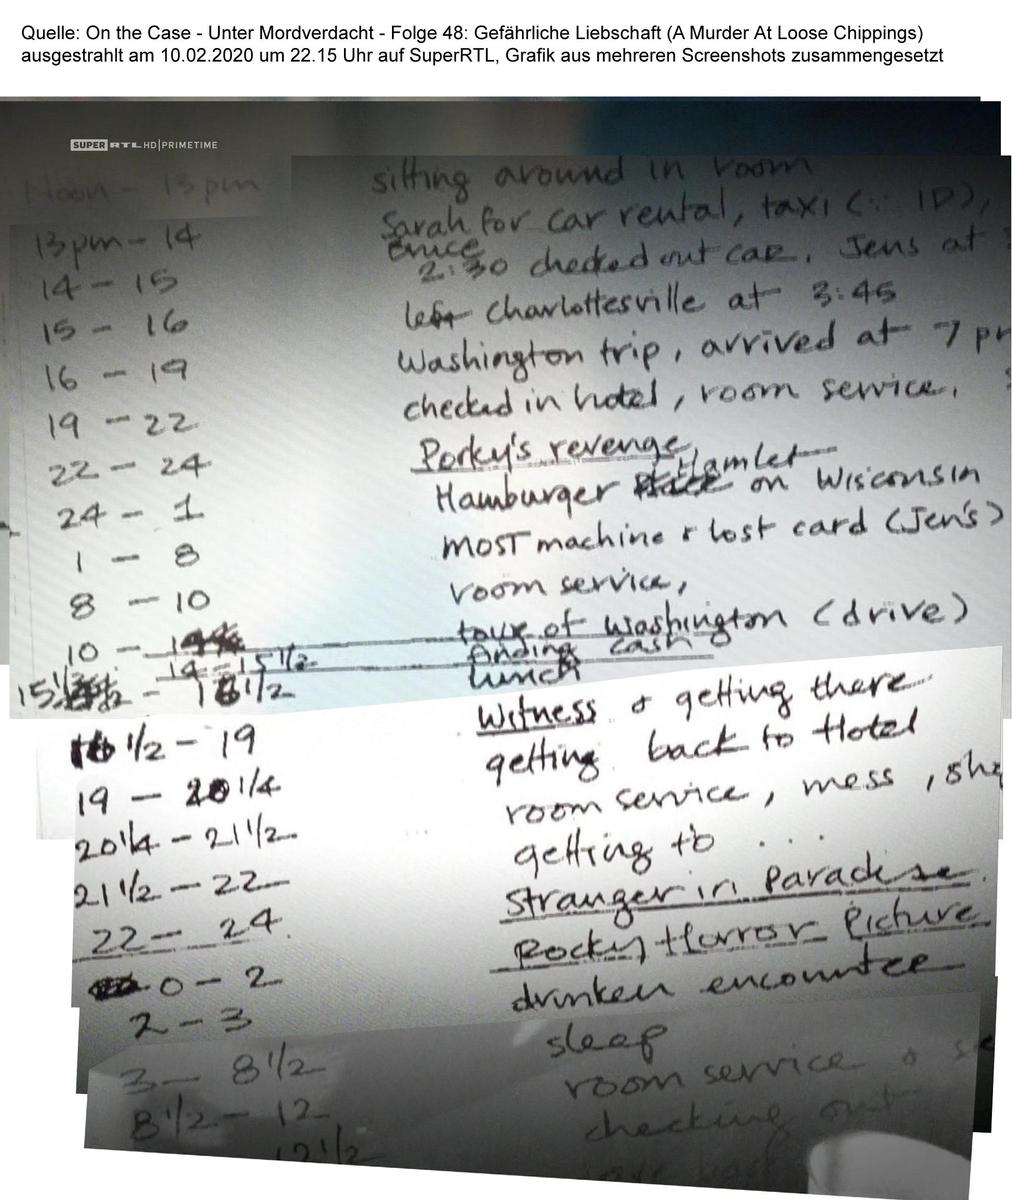 Quelle: On the Case - Unter Mordverdacht - Folge 48: Gefährliche Liebschaft (A Murder At Loose Chippings)
ausgestrahlt am 10.02.2020 um 22.15 Uhr auf SuperRTL, Grafik aus mehreren Screenshots zusammengesetzt
SUPER RTL HD|PRIMETIME
Noon - 13 pm sitting around in room
13 pm - 14 Sarah for car rental, taxi (∵ ID),
14 - 15 2:30 checked out car, Jens at
15 - 16 left Charlottesville at 3:45
16 - 19 Washington trip, arrived at 7 p
19 - 22 checked in hotel, room service.
22 - 24 Porky's revenge
24 - 1 Hamburger Hamlet on Wisconsin
1 - 8 MOST machine & lost card (Jen's)
8 - 10 room service,
10 - 14 tour of Washington (drive)
14 - 15 1/2 finding cash
lunch
16 1/2 - 19 Witness & getting there
19 - 20 1/4 getting back to Hotel
20 1/4 - 21 1/2 room service, mess,
21 1/2 - 22 getting to ....
22 - 24 Stranger in Paradise
0 - 2 Rocky Horror Picture
2 - 3 drunken encounter
3 - 8 1/2 sleep
8 1/2 - 12 room service &
12 1/2 checking out